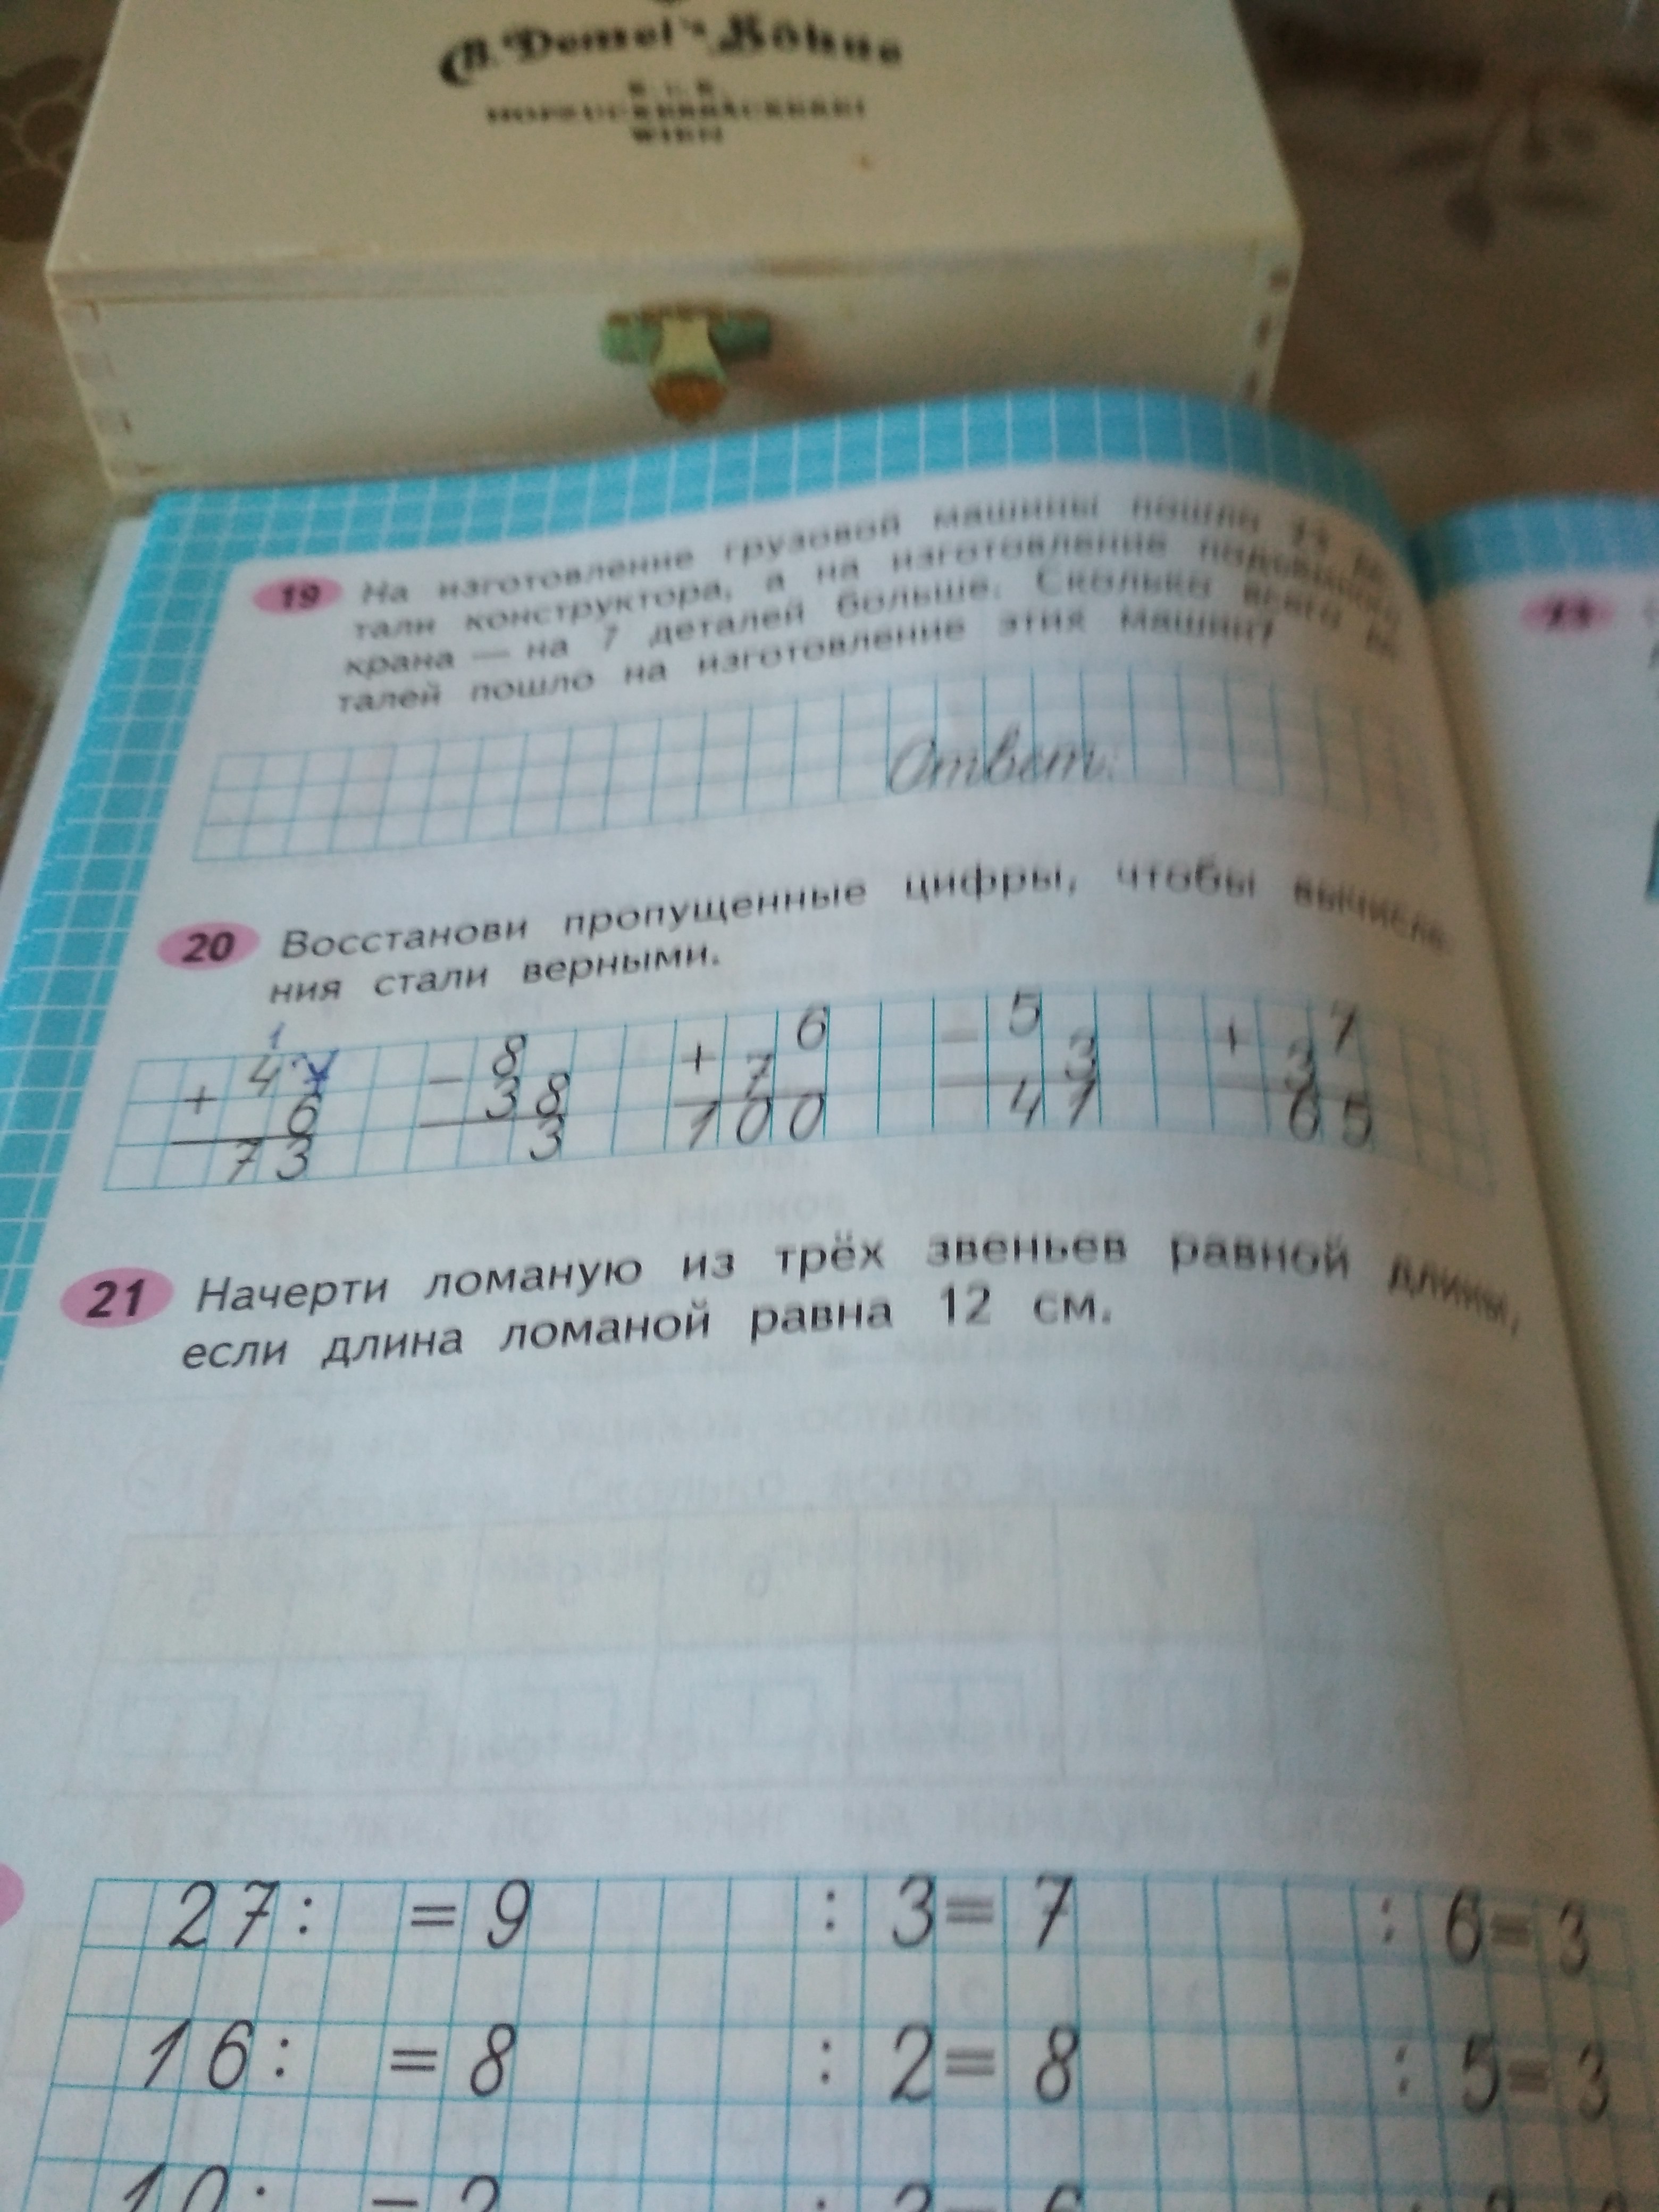 Demel's Söhne
K. u. K.
HOFZUCKERBÄCKEREI
WIEN
19 На изготовление грузовой машины пошло
тали конструктора, а на изготовление подъёмного
крана — на 7 деталей больше. Сколько всего де
талей пошло на изготовление этих машин?
Ответ:
20 Восстанови пропущенные цифры, чтобы вычисле
ния стали верными.
1
+ 4 − 8 + 6 − 5 + 7
6 38 7 3 3
73 3 100 41 65
21 Начерти ломаную из трёх звеньев равной длины,
если длина ломаной равна 12 см.
27: =9 :3=7 :6=3
16: =8 :2=8 :5=3